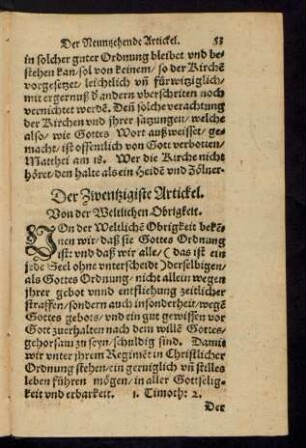 Der Neuntzehende Artickel. 53
in solcher guter Ordnung bleibet vnd be-
stehen kan/ sol von keinem/ so der Kirchē
vorgesetzet/ leichtlich vn̄ fürwitziglich/
mit ergernuß d andern vberschritten noch
vernichtet werdē. Deñ solche verachtung
der Kirchen vnd jhrer satzungen/ welche
also/ wie Gottes Wort außweisset/ ge-
macht/ ist offentlich von Gott verbotten/
Matthei am 18. Wer die Kirche nicht
höret/ den halte als ein Heidē vnd Zölner.
Der Zwentzigiste Artickel.
Von der Weltlichen Obrigkeit.
VOn der Weltlichē Obrigkeit bekē-
nen wir/ daß sie Gottes Ordnung
ist: vnd daß wir alle/ ( das ist ein
jede Seel ohne vnterscheidt ) derselbigen/
als Gottes Ordnung/ nicht allein wegen
jhrer gebot vnnd entfliehung zeitlicher
straffen/ sondern auch insonderheit/ wegē
Gottes gebots/ vnd ein gut gewissen vor
Gott zuerhalten nach dem willē Gottes/
gehorsam zu seyn/ schuldig sind. Damit
wir vnter jhrem Regimēt in Christlicher
Ordnung stehen/ ein geruiglich vn̄ stilles
leben führen mögen/ in aller Gottselig-
keit vnd erbarkeit. 1. Timoth: 2.
Der